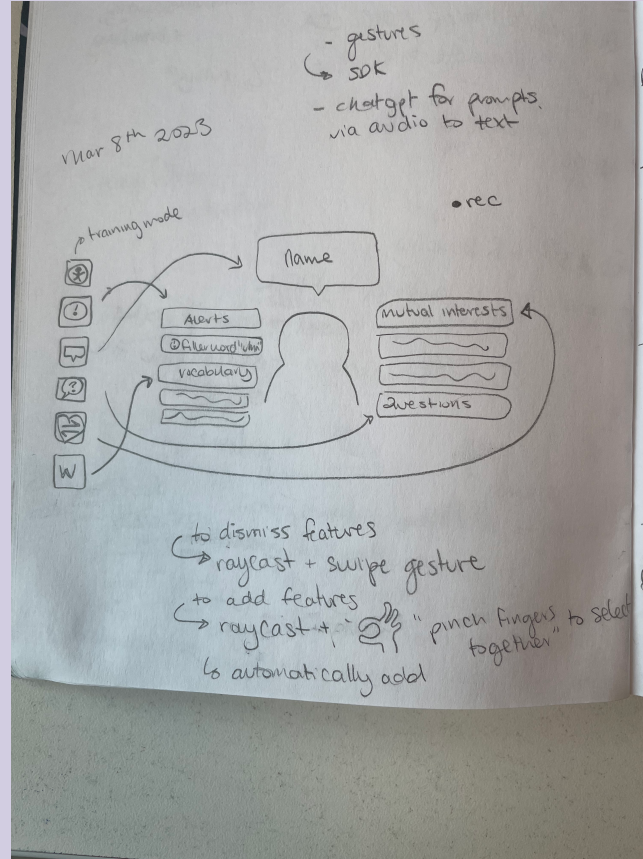 - gestures
↳ SDK
- chatgpt for prompts.
via audio to text
Mar 8th 2023
• rec
training mode
name
Alerts
! filler word "uhm"
vocabulary
mutual interests
Questions
!
?
W
to dismiss features
↳ raycast + swipe gesture
to add features
↳ raycast + "pinch fingers to select
together"
↳ automatically add